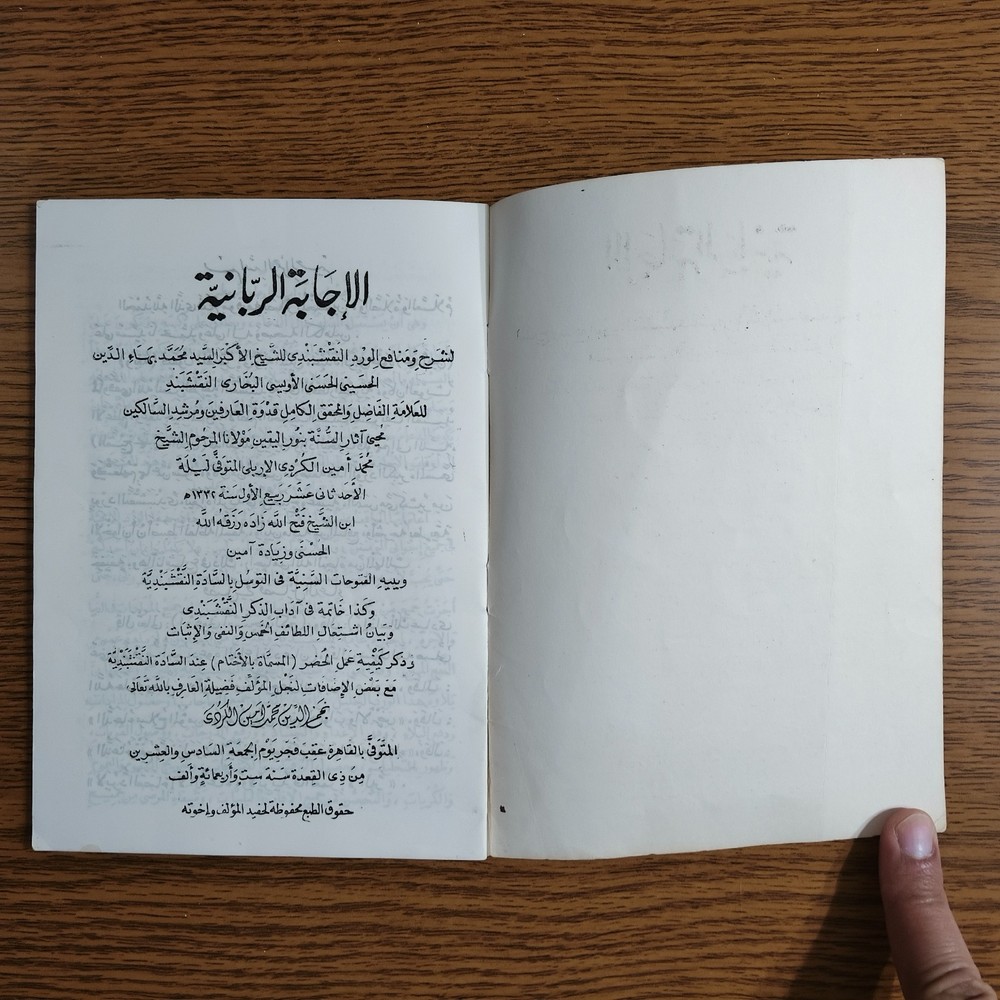 الإجَابَة الرّبّانِيّة
لشَرح وَمَنافع الورد النقشبندى للشيخ الأكبر السيد محمَّد بهاء الدّين
الحسَينى الحسَنى الأويسى البُخَارى النقشَبند
للعَلامَة الفَاضِل وَالمحقق الكامِل قدْوَة العَارفين وَمُرشد السَّالكين
محيى آثار السُّنَّة بنور اليقين مَوْلانا المرحوم الشيخ
محمَّد أمين الكُرْدِى الإربلى المتوَفَّى لَيْلَة
الأحَد ثانى عَشَر رَبيع الأول سَنة ١٣٣٢ه
ابن الشيخ فَتْح الله زَاده رَزَقهُ الله
الحسْنَى وَزيَادَة آمين
وَيليه الفتوحات السَّنِيَّة فى التوسُل بالسَّادَة النَّقْشَبَنْدِيَّة
وَكَذا خَاتمة فى آدَاب الذكر النَّقْشَبَنْدِى
وَبيَانُ اشتِغال اللطائفِ الخمس وَالنفى وَالإثبَات
وَذكر كَيْفِيةِ عَمل الخَتم (المسمَّاة بالأختام) عِندَ السَّادَة النَّقْشَبَنْدِيَّة
مَعَ بَعْض الإضافات لنَجْل المؤلّف فَضِيلَة العَارف بالله تعَالى
نجم الدين محمد امين الكردى
المتَوَفَّى بالقاهِرَة عقِبَ فَجر يَوْم الجمعَة السادس وَالعِشرين
مِنْ ذِى القعدَة سَنَة سِتٍ وَأربعمائةٍ وَألف
حقوق الطبع محفوظة لحفيد المؤلف وإخوته